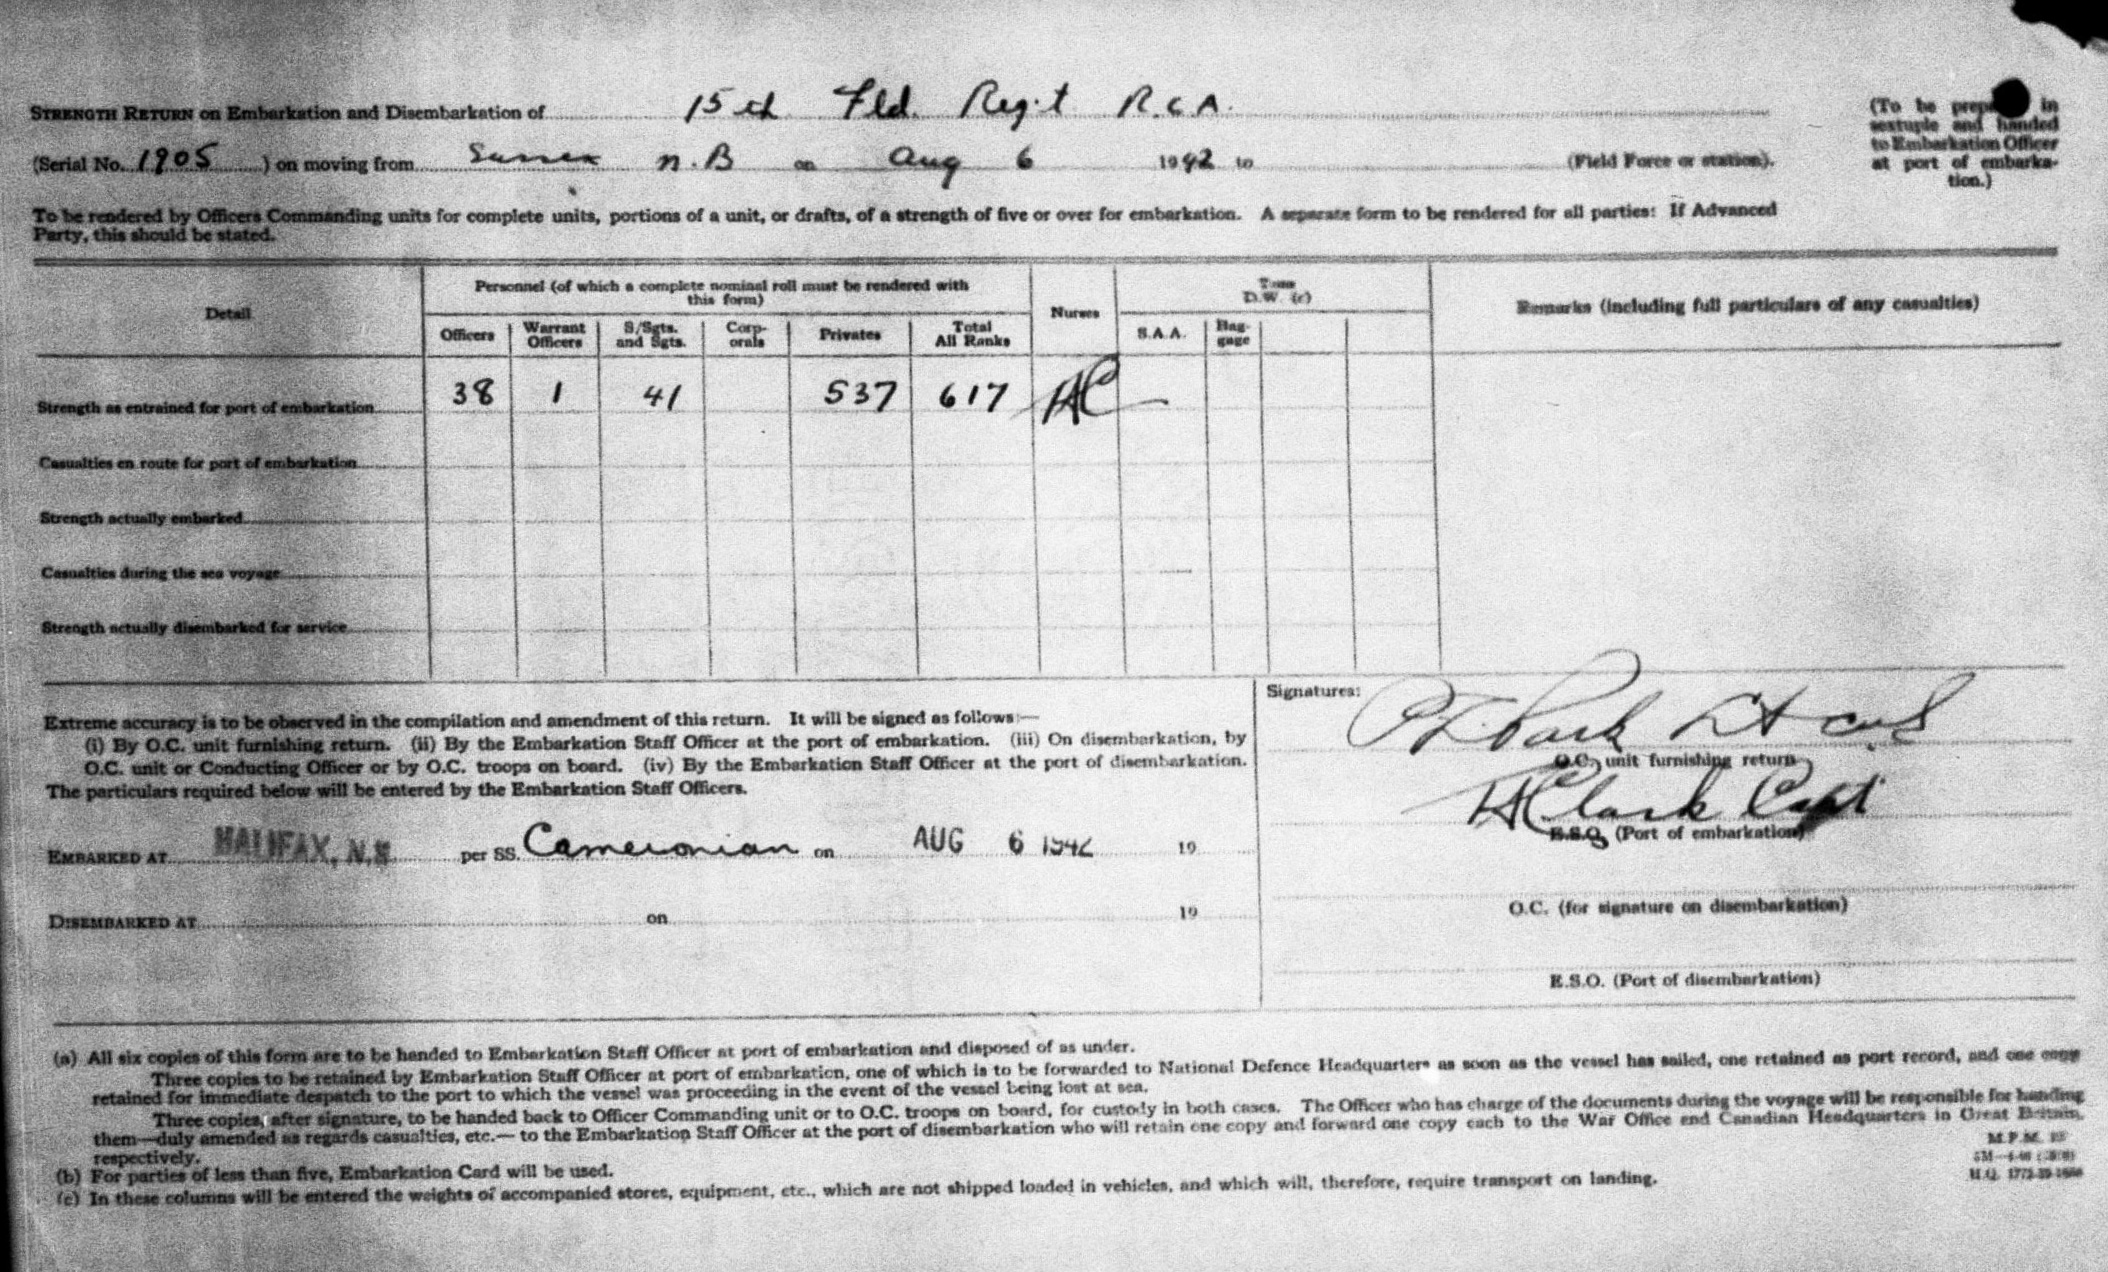 STRENGTH RETURN on Embarkation and Disembarkation of 15th Fld. Reg't R.C.A.
(Serial No. 1905 ) on moving from Sussex N.B on Aug 6 1942 to (Field Force or station).
(To be prepared in
sextuple and handed
to Embarkation Officer
at port of embarka-
tion.)
To be rendered by Officers Commanding units for complete units, portions of a unit, or drafts, of a strength of five or over for embarkation. A separate form to be rendered for all parties: If Advanced
Party, this should be stated.
Detail
Personnel (of which a complete nominal roll must be rendered with
this form)
Officers
Warrant
Officers
S/Sgts.
and Sgts.
Corp-
orals
Privates
Total
All Ranks
Nurses
Tons
D.W. (c)
S.A.A.
Bag-
gage
Remarks (including full particulars of any casualties)
Strength as entrained for port of embarkation 38 1 41 537 617 HC
Casualties en route for port of embarkation
Strength actually embarked
Casualties during the sea voyage
Strength actually disembarked for service
Extreme accuracy is to be observed in the compilation and amendment of this return. It will be signed as follows:—
(i) By O.C. unit furnishing return. (ii) By the Embarkation Staff Officer at the port of embarkation. (iii) On disembarkation, by
O.C. unit or Conducting Officer or by O.C. troops on board. (iv) By the Embarkation Staff Officer at the port of disembarkation.
The particulars required below will be entered by the Embarkation Staff Officers.
EMBARKED AT HALIFAX, N.S. per SS. Cameronian on AUG 6 1942 19
DISEMBARKED AT on 19
Signatures:
Park Lt Col
O.C. unit furnishing return
HClark Capt
E.S.O. (Port of embarkation)
O.C. (for signature on disembarkation)
E.S.O. (Port of disembarkation)
(a) All six copies of this form are to be handed to Embarkation Staff Officer at port of embarkation and disposed of as under.
Three copies to be retained by Embarkation Staff Officer at port of embarkation, one of which is to be forwarded to National Defence Headquarters as soon as the vessel has sailed, one retained as port record, and one copy
retained for immediate despatch to the port to which the vessel was proceeding in the event of the vessel being lost at sea.
Three copies, after signature, to be handed back to Officer Commanding unit or to O.C. troops on board, for custody in both cases. The Officer who has charge of the documents during the voyage will be responsible for handing
them—duly amended as regards casualties, etc.— to the Embarkation Staff Officer at the port of disembarkation who will retain one copy and forward one copy each to the War Office and Canadian Headquarters in Great Britain,
respectively.
(b) For parties of less than five, Embarkation Card will be used.
(c) In these columns will be entered the weights of accompanied stores, equipment, etc., which are not shipped loaded in vehicles, and which will, therefore, require transport on landing.